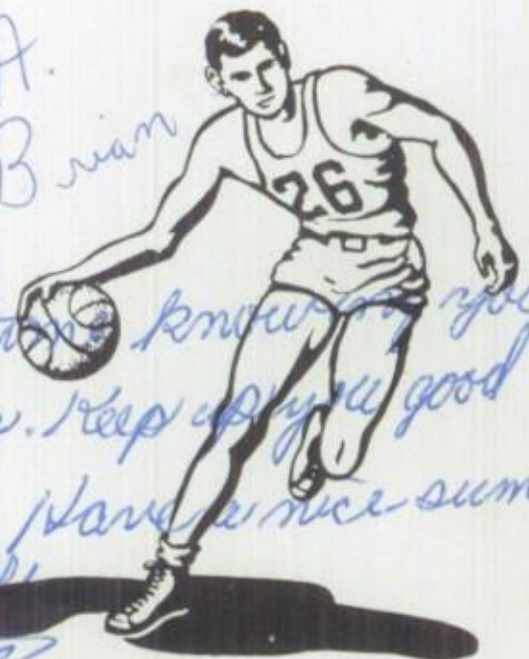 A.
Brian
26
knowing you
. Keep up you good
Have a nice sum